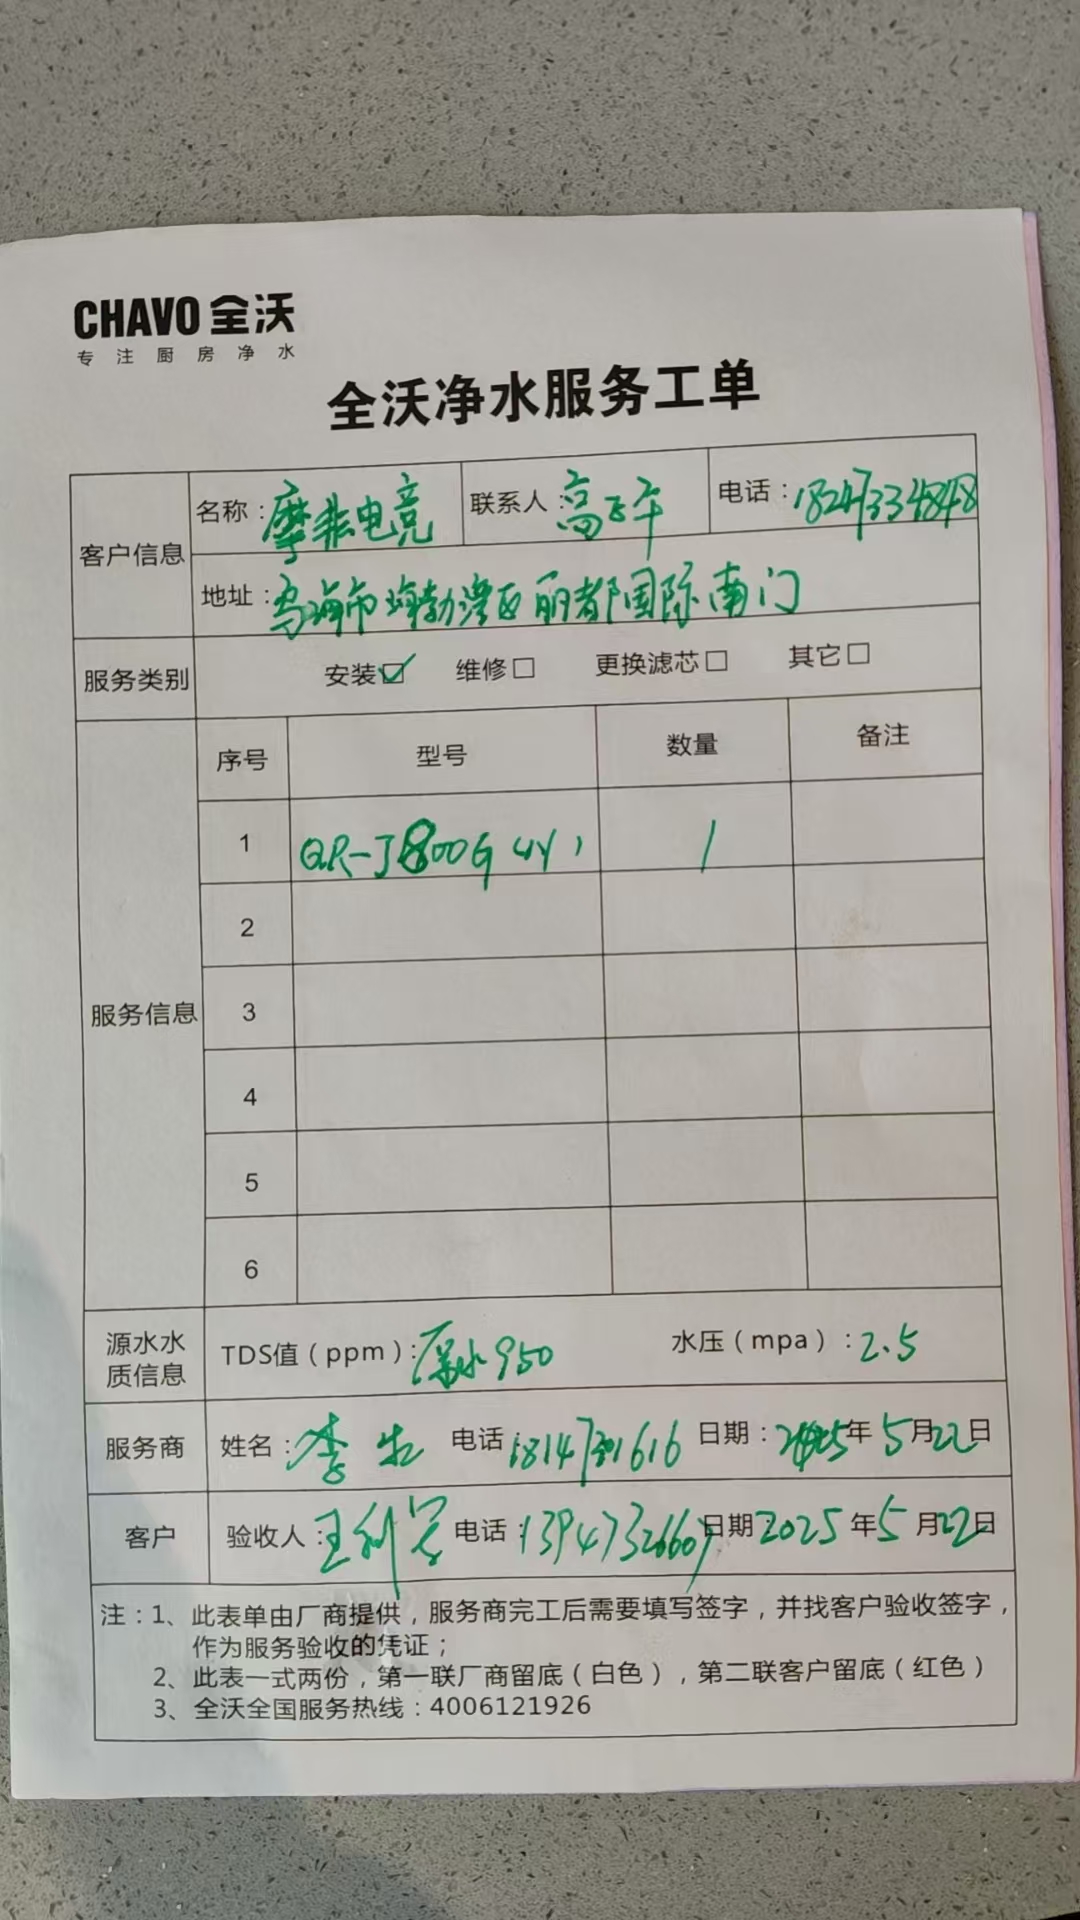 CHAVO 全沃
专注厨房净水
全沃净水服务工单
客户信息 名称：摩非电竞 联系人：高 电话：18247334848
地址：乌海市海勃湾区丽都国际南门
服务类别 安装☑ 维修□ 更换滤芯□ 其它□
服务信息 序号 型号 数量 备注
1 QR-J800G 1
2
3
4
5
6
源水水质信息 TDS值（ppm）：原水950 水压（mpa）：2.5
服务商 姓名：李 电话 日期：2025年5月22日
客户 验收人：王利 电话：13947326607 日期：2025年5月22日
注：1、此表单由厂商提供，服务商完工后需要填写签字，并找客户验收签字，
作为服务验收的凭证；
2、此表一式两份，第一联厂商留底（白色），第二联客户留底（红色）
3、全沃全国服务热线：4006121926